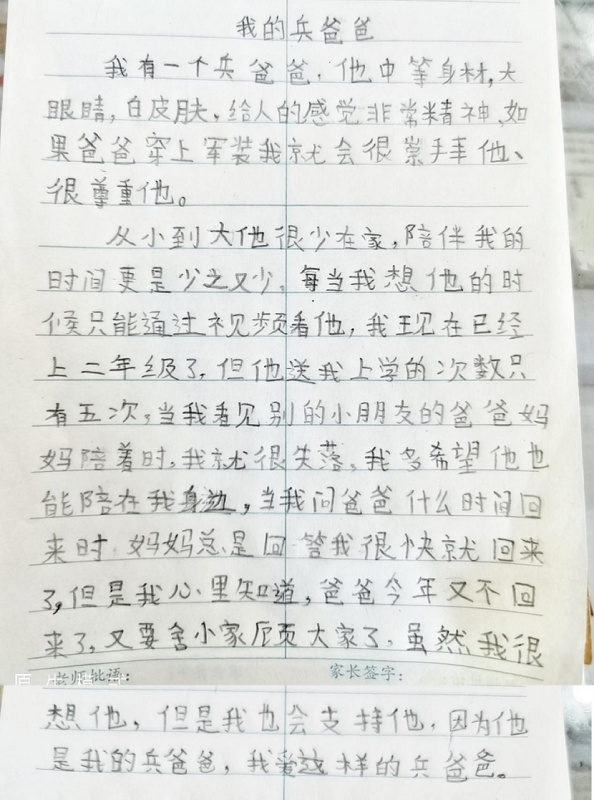 我的兵爸爸
我有一个兵爸爸，他中等身材，大
眼睛，白皮肤，给人的感觉非常精神，如
果爸爸穿上军装我就会很崇拜他、
很尊重他。
从小到大他很少在家，陪伴我的
时间更是少之又少，每当我想他的时
候只能通过视频看他，我现在已经
上二年级了，但他送我上学的次数只
有五次，当我看见别的小朋友的爸爸妈
妈陪着时，我就很失落，我多希望他也
能陪在我身边，当我问爸爸什么时间回
来时，妈妈总是回答我很快就回来
了，但是我心里知道，爸爸今年又不回
来了，又要舍小家顾大家了，虽然我很
老师批语： 家长签字：
想他，但是我也会支持他，因为他
是我的兵爸爸，我爱这样的兵爸爸。